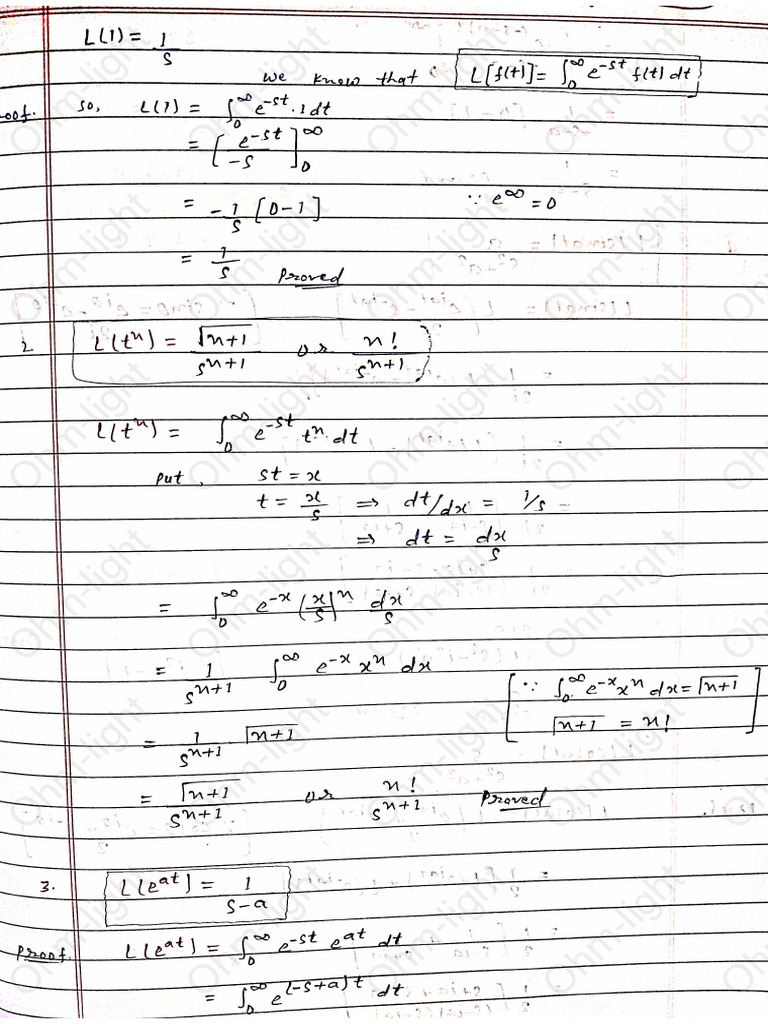 L(1) = 1/s
We know that L[f(t)] = ∫₀^∞ e^-st f(t) dt
oof. So, L(1) = ∫₀^∞ e^-st . 1 dt
= [e^-st/-s]₀^∞
= -1/s [0-1] ∵ e^∞ = 0
= 1/s Proved
2. L(t^n) = Γn+1/s^n+1 or n!/s^n+1
L(t^n) = ∫₀^∞ e^-st t^n dt
put, st = x
t = x/s ⇒ dt/dx = 1/s
⇒ dt = dx/s
= ∫₀^∞ e^-x (x/s)^n dx/s
= 1/s^n+1 ∫₀^∞ e^-x x^n dx
[∵ ∫₀^∞ e^-x x^n dx = Γn+1
Γn+1 = n!]
= 1/s^n+1 Γn+1
= Γn+1/s^n+1 or n!/s^n+1 Proved
3. L(e^at) = 1/s-a
Proof. L(e^at) = ∫₀^∞ e^-st e^at dt
= ∫₀^∞ e^(-s+a)t dt
Ohm-light